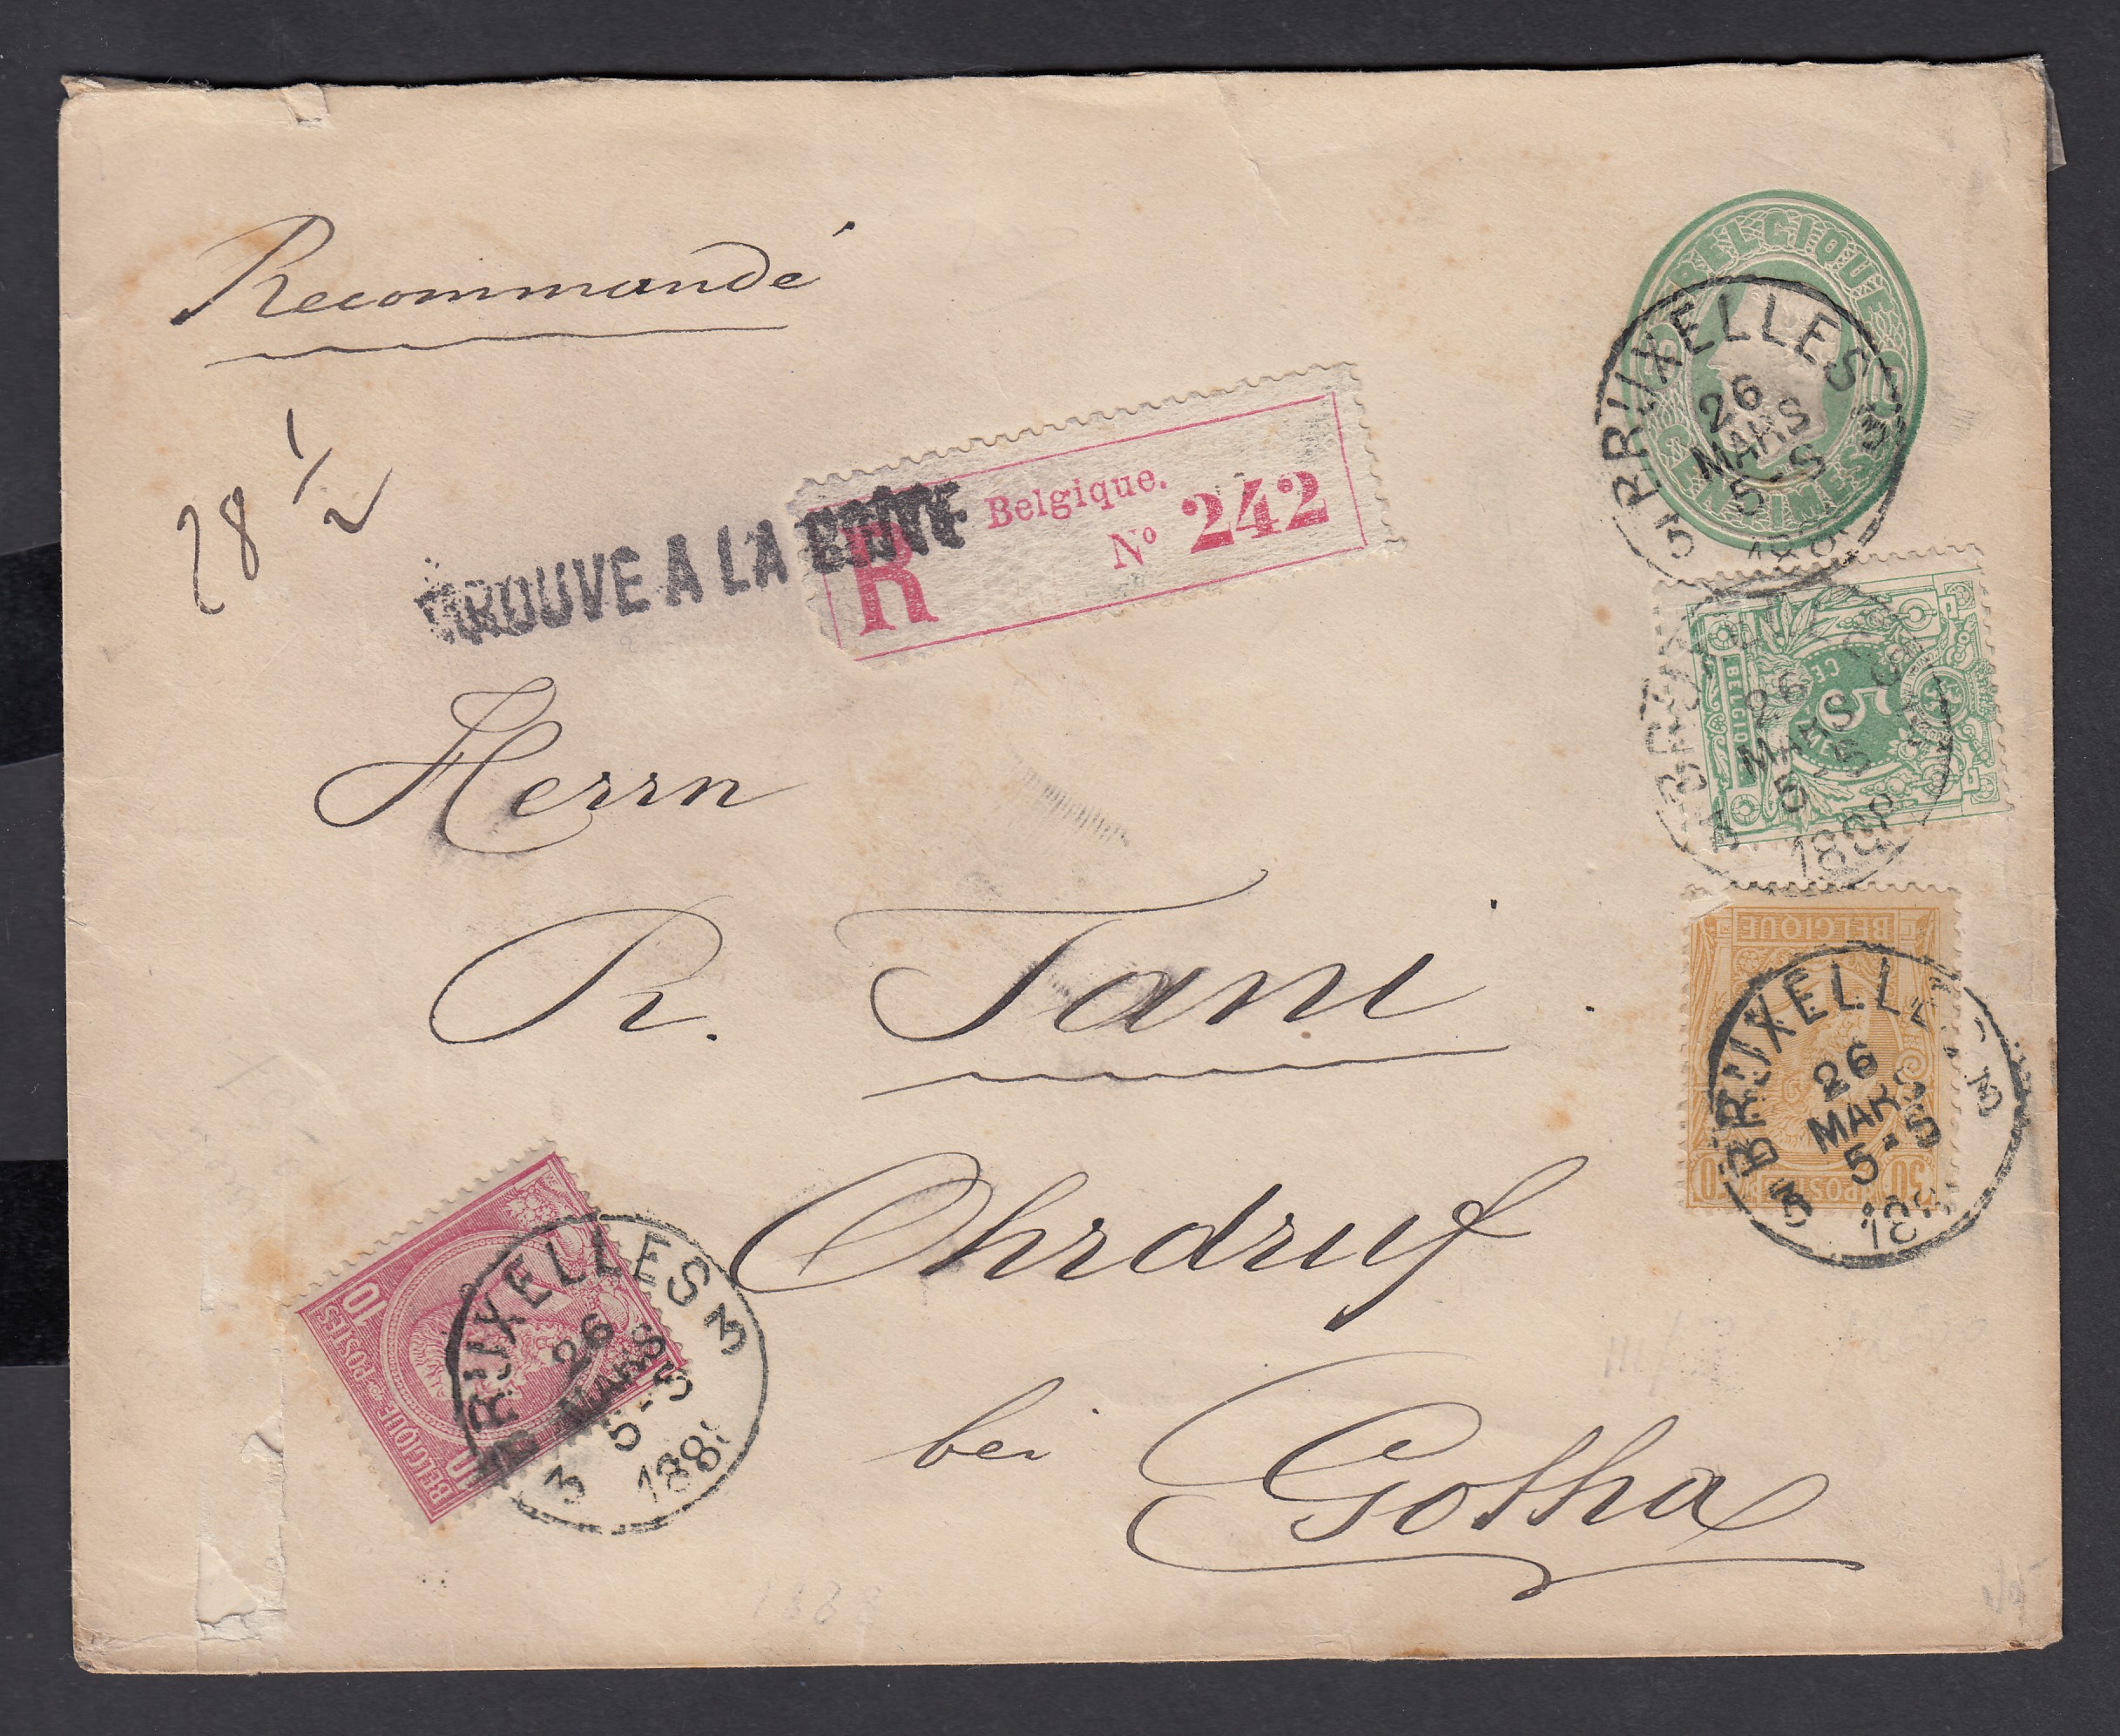 Recommandé
28 1/2
TROUVE A LA BOITE
R Belgique.
No 242
BELGIQUE
CENTIMES
BRUXELLES 3
26
MARS
5-S
3
BELGIQUE
5
BRUXELLES
26
MARS
5-S
1888
BELGIQUE
POSTES
50
BRUXELLES 3
26
MARS
5-S
3
Herrn
R. Tani
Ohrdruf
bei Gotha
10 POSTES BELGIQUE 10
BRUXELLES 3
26
MARS
5-S
3
1888